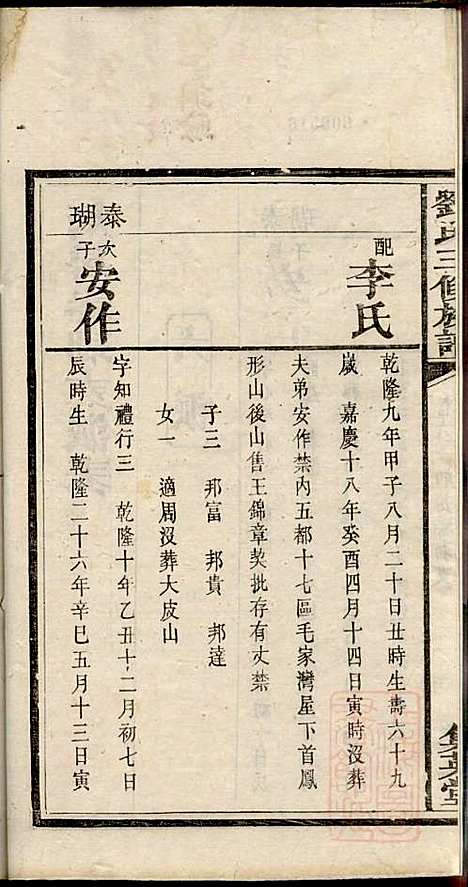 劉氏三修族譜
集英堂
配
李氏
乾隆九年甲子八月二十日丑時生壽六十九
歲 嘉慶十八年癸酉四月十四日寅時沒葬
夫弟安作禁內五都十七區毛家灣屋下首鳳
形山後山售王錦章契批存有丈禁
子三 邦富 邦貴 邦達
女一 適周沒葬大皮山
泰瑚
次子
安作
字知禮行三 乾隆十年乙丑十二月初七日
辰時生 乾隆二十六年辛巳五月十三日寅